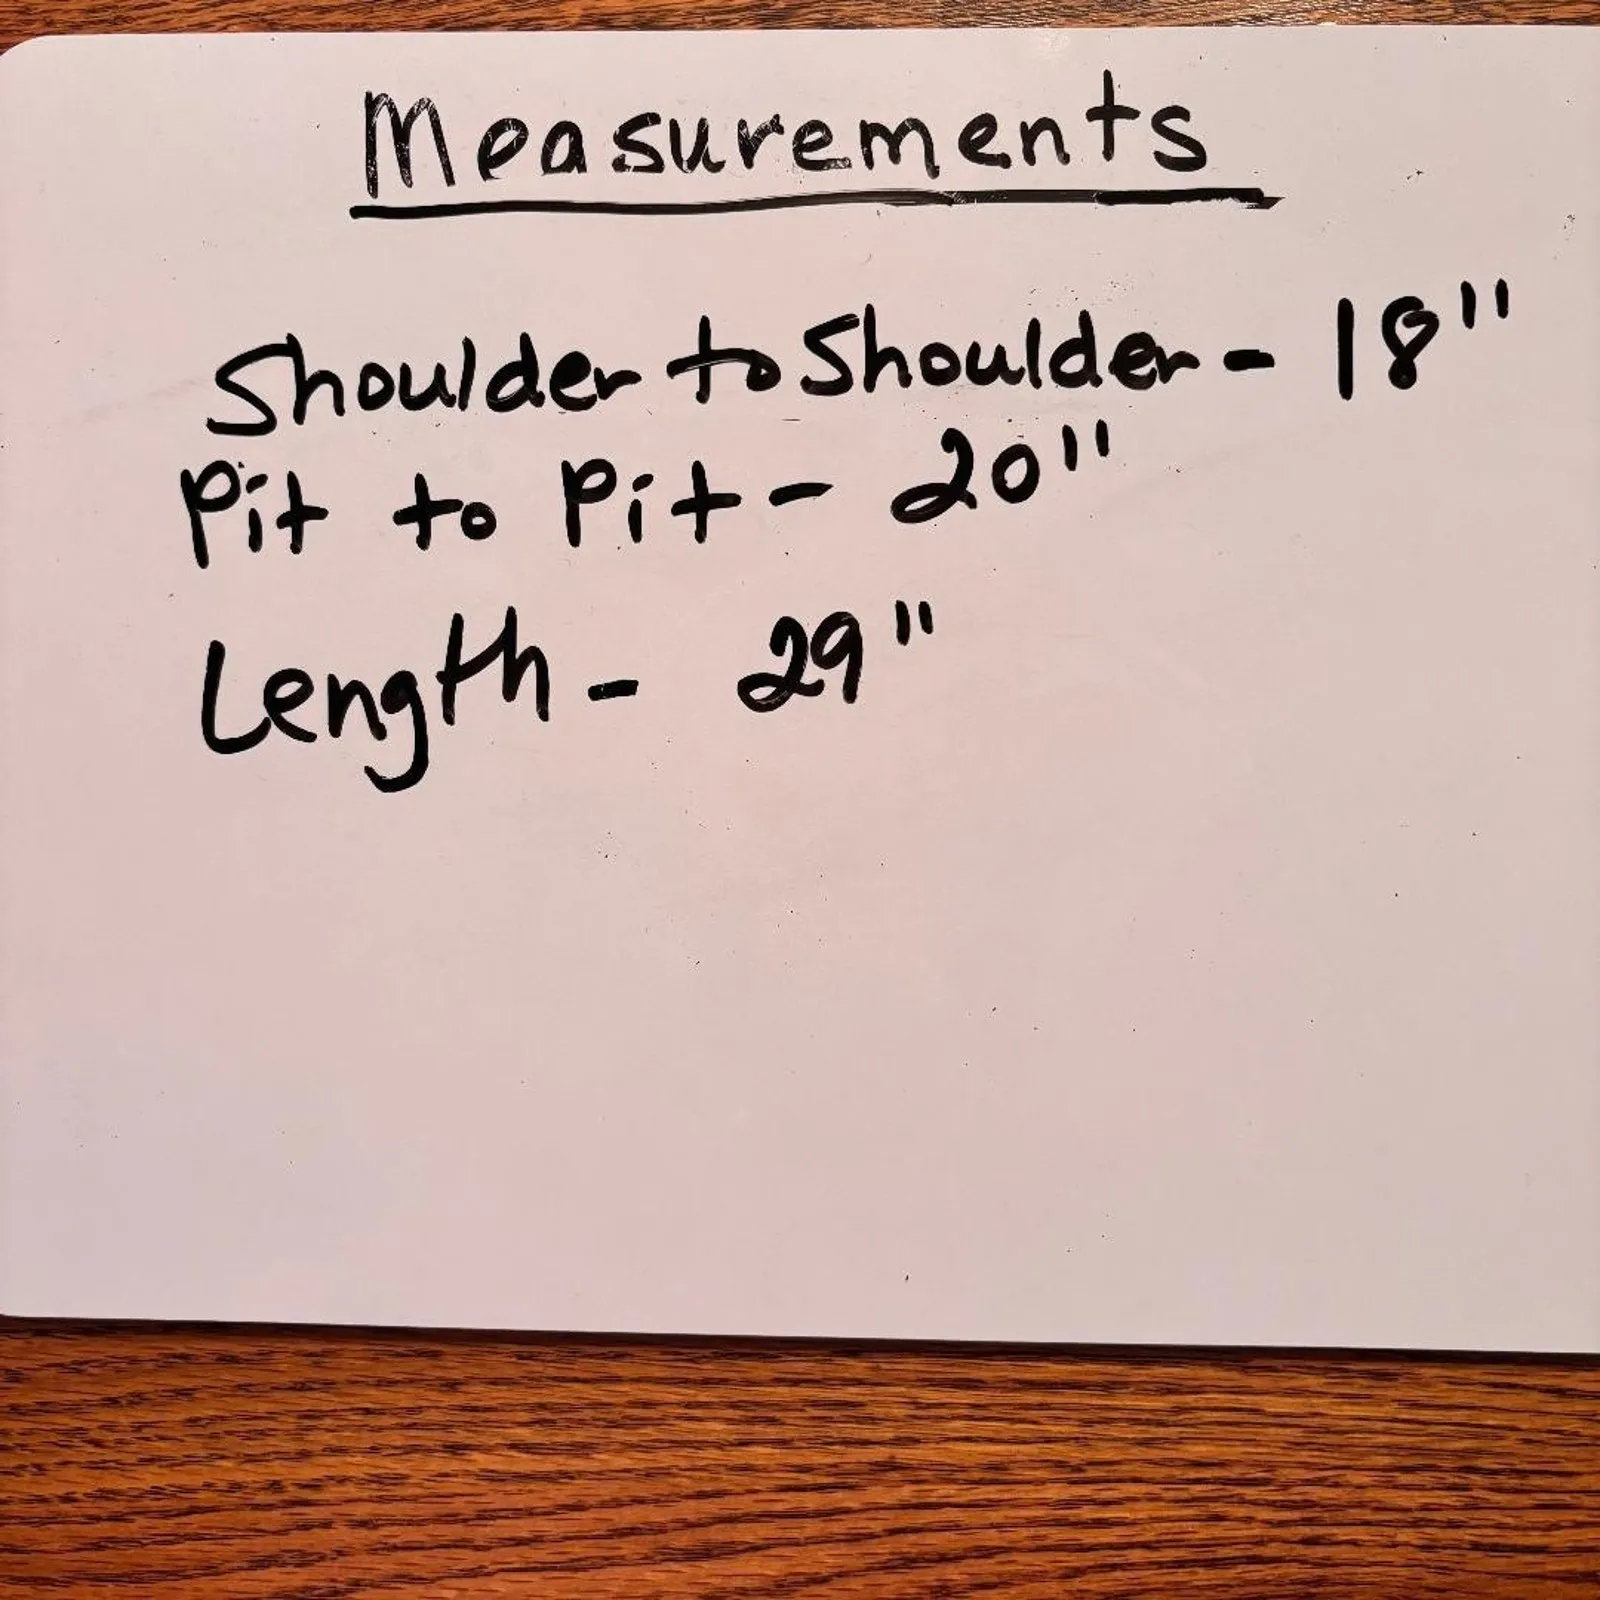 Measurements
Shoulder to Shoulder - 18"
Pit to Pit - 20"
Length - 29"